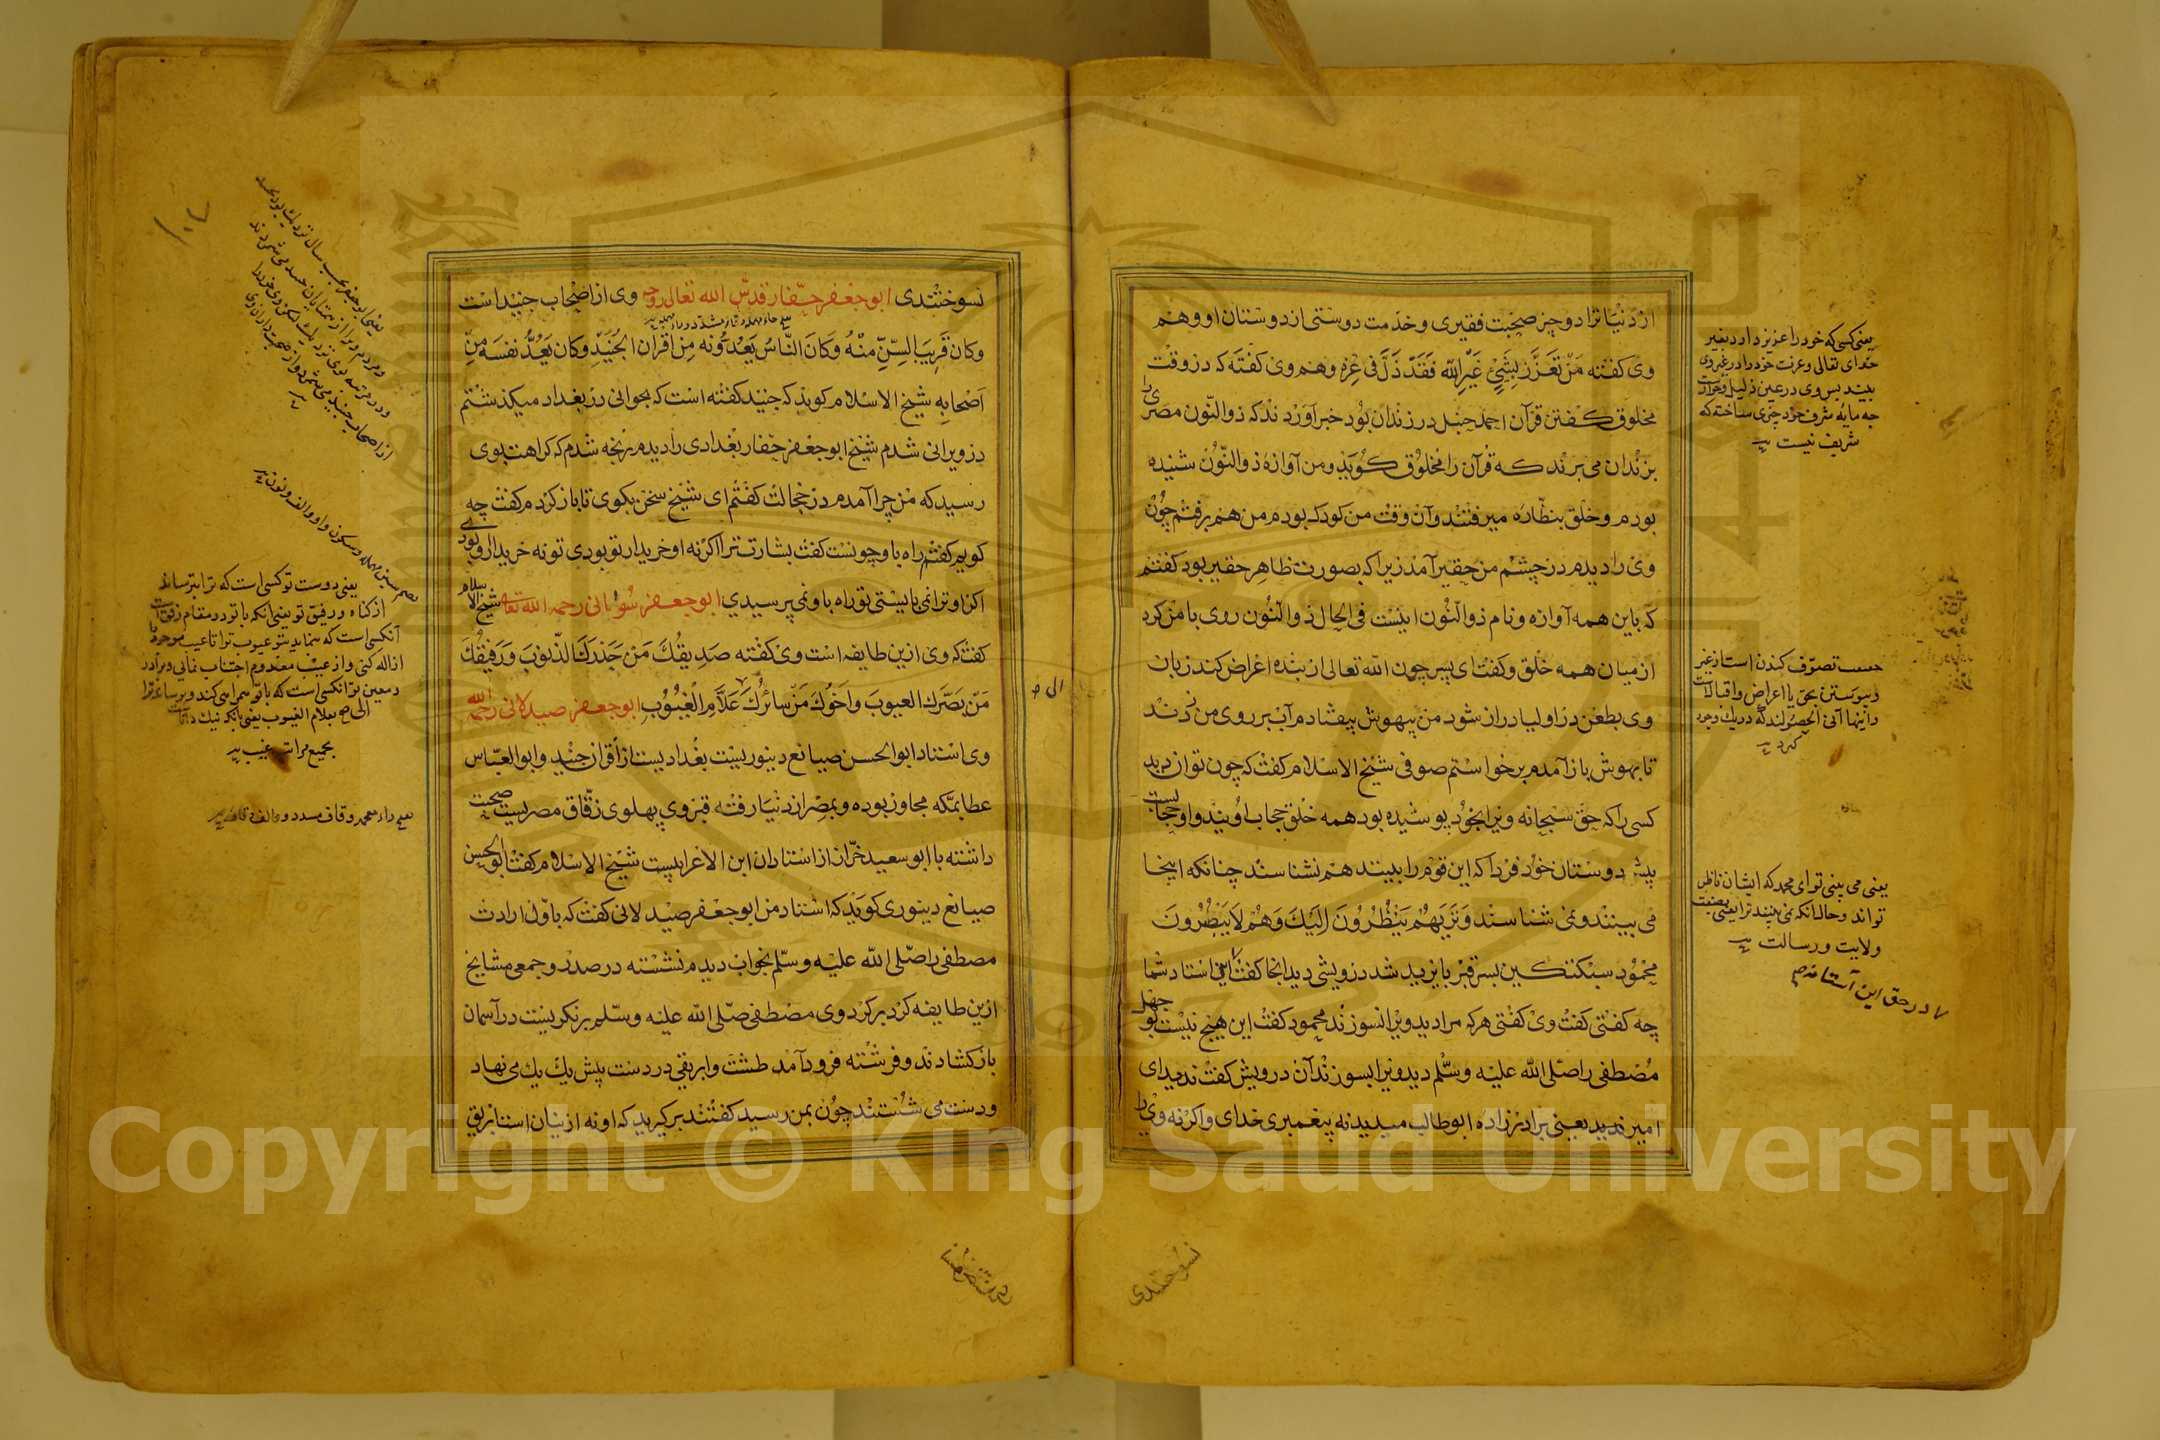 از دنیا ترا دو چیز صحبت فقیری و خدمت دوستی از دوستان او و هم
وی گفته مَنْ تَعَزَّزَ بِشَیْءٍ غَیْرِ اللّٰه فَقَدْ ذَلَّ فی عِزِّهِ و هم وی گفته که در وقت
مخلوق گفتن قرآن احمد حنبل در زندان بود خبر آوردند که ذوالنّون مصری را
بزندان می برند که قرآن را مخلوق گوید و من آوازهٔ ذوالنّون شنیده
بودم و خلق بنظاره میرفتند و آن وقت من کودک بودم من هم برفتم چون
وی را دیدم در چشم من حقیر آمد زیرا که بصورت ظاهر حقیر بود گفتم
که باین همه آوازه و نام ذوالنّون اینست فی الحال ذوالنّون روی با من کرد
از میان همه خلق و گفت ای پسر چون اللّه تعالی از بنده اعراض کند زبان
وی بطعن در اولیا دراز شود من بیهوش بیفتادم آب بر روی من زدند
تا بهوش باز آمدم برخواستم صوفی شیخ الاسلام گفت که چون توان دید
کسی را که حق سبحانه ویرا بخود پوشیده بود همه خلق حجاب اویند و او حجابست
پیش دوستان خود فردا که این قوم را ببینند هم نشناسند چنانکه اینجا
می بینند و نمی شناسند وَتَرَیهُمْ یَنْظُرُونَ اِلَیْكَ وَهُمْ لَا یُبْصِرُونَ
محمود سبکتکین بسر قبر بایزید شد درویشی دید آنجا گفت این استاد شما
چه گفتی گفت وی گفتی هر که مرا دید ویرا نسوزند محمود گفت این هیچ نیست بوجهل
مصطفی را صلّی اللّه علیه و سلّم دید ویرا بسوزند آن درویش گفت ندید ای
امیر ندید یعنی برادرزادهٔ ابوطالب میدید نه پیغمبری خدای و اگرنه وی را
یعنی کسی که خود را عزیز دارد بغیر
خدای تعالی و عزت خود را در غیر وی
بیند پس وی در عین ذلیل و خوارست
چه مایه شرف خود چیزی ساخته که
شریف نیست
یعنی می بینی تو ای محمد که ایشان ناظر
تواند و حالانکه نمی بینند ترا یعنی بصفت
ولایت و رسالت
در حق این آستانه
نسوختندی
نسوختندی ابو جعفر حفّار قدّس اللّه تعالی روحه وی از اصحاب جنید است
وکان قَرِیبَ السِّنِّ مِنْهُ وَکَانَ النَّاسُ یَعُدُّونَه مِنْ اَقران الجُنَیْدِ وکان یَعُدُّ نَفْسَه مِنْ
اَصْحابِهِ شیخ الاسلام گوید که جنید گفته است که بجوانی در بغداد میگذشتم
در ویرانی شدم شیخ ابو جعفر حفار بغدادی را دیدم رنجه شدم که کراهت بوی
رسید که من چرا آمدم در خجالت گفتم ای شیخ سخن بگوی تا باز گردم گفت چه
گویم گفتم راه باو چونست گفت بشارت ترا اگر نه او خریدار تو بودی تو نه خریدار وی بودی
اگر او ترا نمی بایستی تو راه باو نمی پرسیدی ابو جعفر سُومانی رحمه اللّه تعه شیخ الاسلام
گفت که وی ازین طایفه است وی گفته صَدِیقُكَ مَنْ حَذَّرَكَ الذّنوبَ وَرَفِیقُكَ
مَنْ بَصَّرَكَ العیوبَ وَاَخُوكَ مَنْ سائَرَكَ عَلَّامِ الْغُیُوبِ ابو جعفر صیدلانی رحمه اللّه
وی استاد ابو الحسن صایغ دینوریست بغدادیست از اقران جنید و ابو العبّاس
عطا بمکّه مجاور بوده و بمصر از دنیا رفته قبر وی پهلوی زقّاق مصریست صحبت
داشته با ابو سعید خرّاز از استادان ابن الاعرابیست شیخ الاسلام گفت ابو الحسن
صایغ دینوری گوید که استاد من ابو جعفر صیدلانی گفت که باوّل ارادت
مصطفی را صلّی اللّه علیه و سلّم بخواب دیدم نشسته در صدر و جمعی مشایخ
ازین طایفه گرد بر گرد وی مصطفی صلّی اللّه علیه و سلّم برنگریست در آسمان
باز گشادند و فرشته فرود آمد طشت و ابریقی در دست پیش یك یك می نهاد
و دست می شستند چون بمن رسید گفتند برگیرید که او نه ازینان است ابریق
یعنی دوست تو کسی است که ترا بترساند
از گناه و رفیق تو یعنی آنکه با تو در مقام رفق است
آنکسی است که بنماید بتو عیوب ترا تا عیب موجود را
ازاله کنی و از عیب معدوم اجتناب نمایی
Copyright © King Saud University